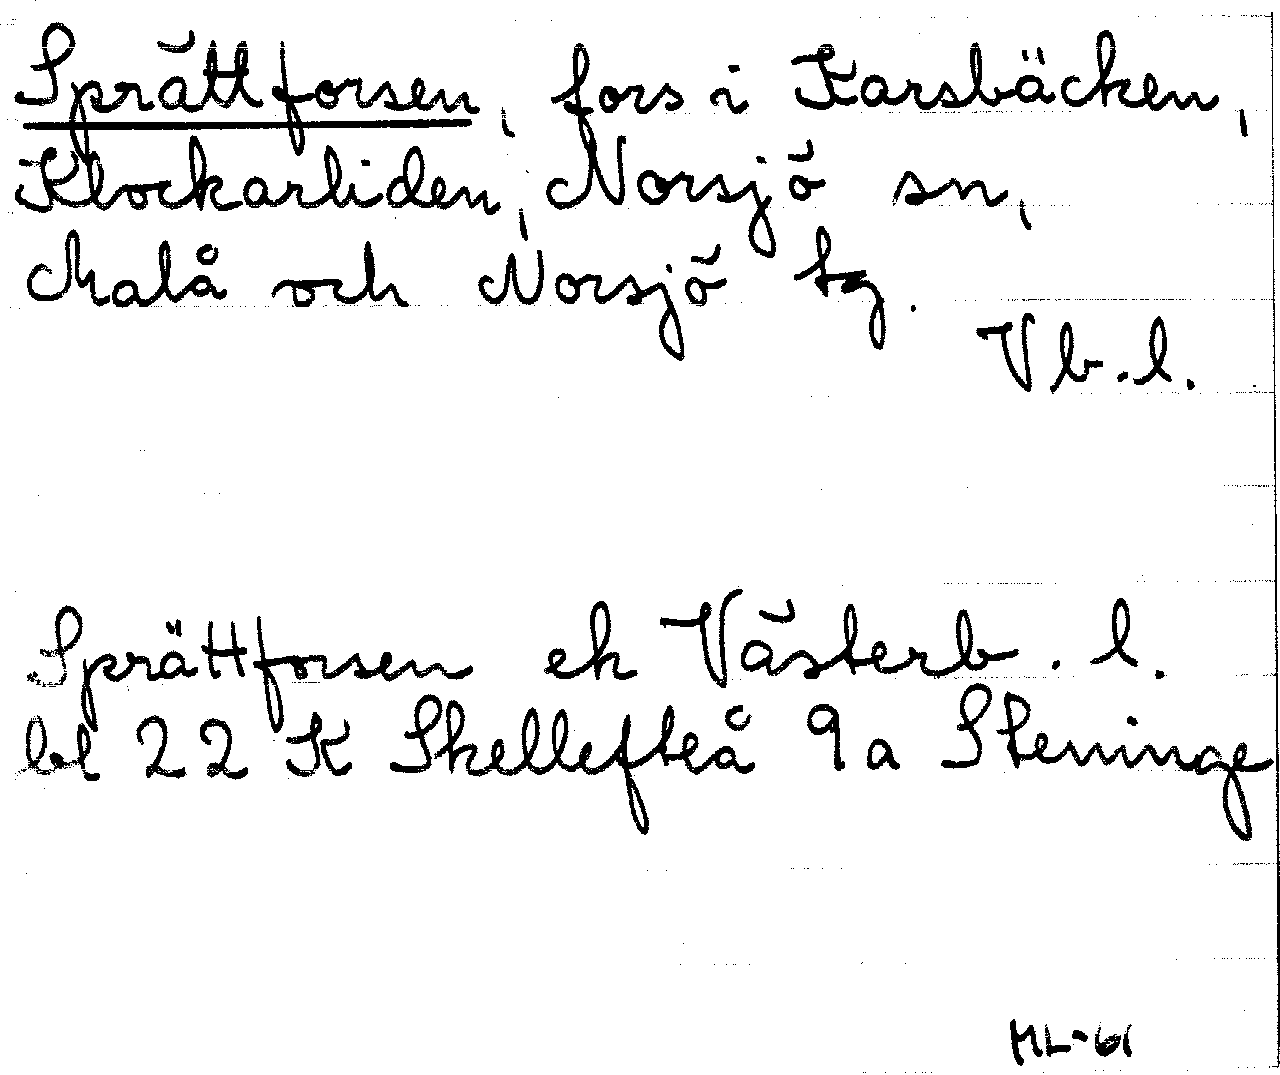 Sprättforsen, fors i Karsbäcken,
Klockarliden, Norsjö sn,
Malå och Norsjö tg.
Vb.l.
Sprättforsen ek Västerb. l.
bl 22 K Skellefteå 9a Steninge
ML-61